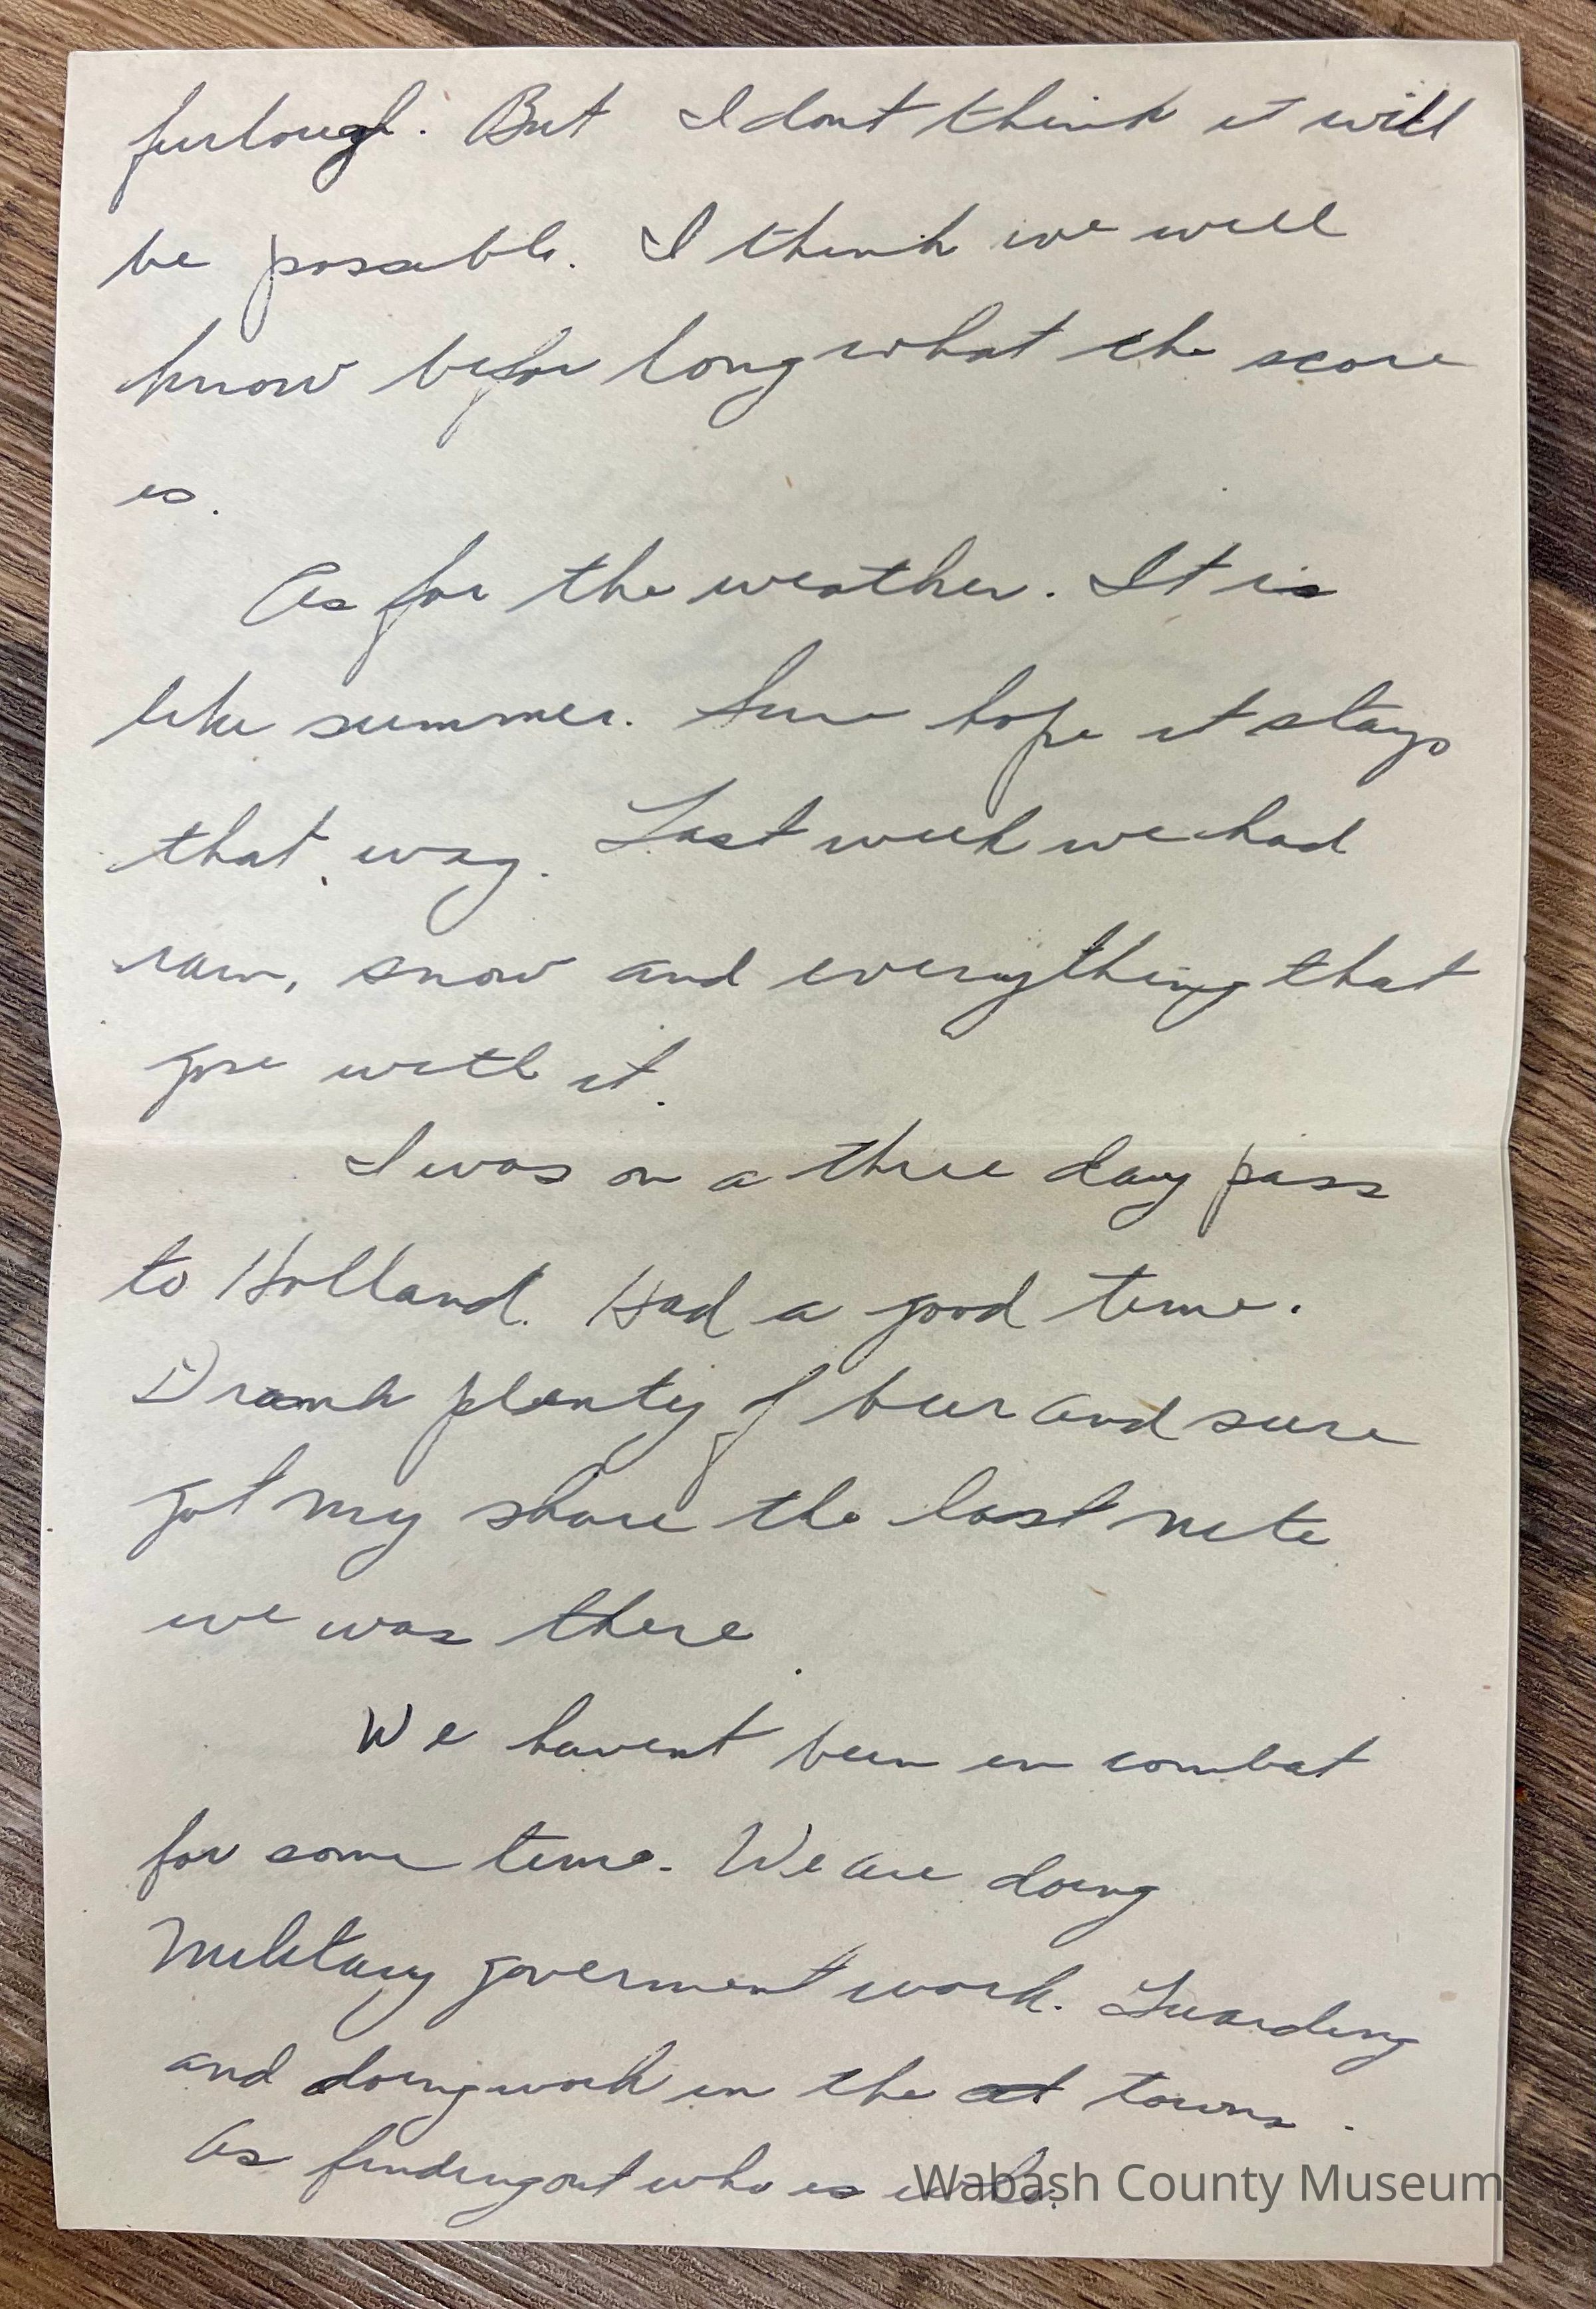 furlough. But I dont think it will
be possible. I think we will
know befor long what the score
is.
As for the weather. It is
like summer. Sure hope it stays
that way. Last week we had
rain, snow and everything that
goe with it.
I was on a three day pass
to Holland. Had a good time.
Drank plenty of beer and sure
got my share the last nite
we was there.
We havent been in combat
for some time. We are doing
Military goverment work. Guarding
and doing work in the towns.
As finding out who is
Wabash County Museum